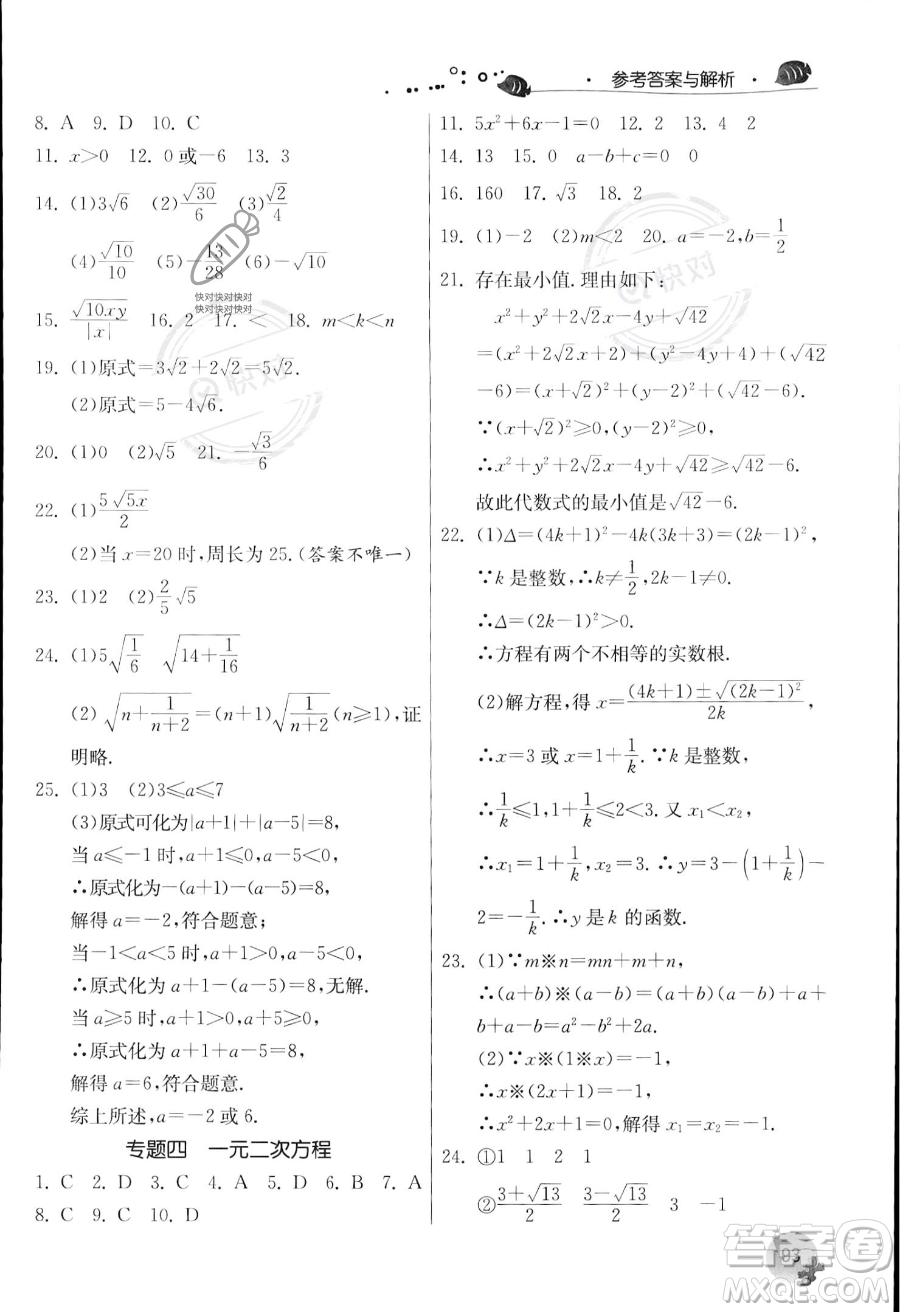 · 参考答案与解析 ·
8. A 9. D 10. C
11. x>0 12. 0或-6 13. 3
14. (1)3√6 (2)√30/6 (3)√2/4
(4)√10/10 (5)-13/28 (6)-√10
快对快对快对
快对快对快对
15. √(10xy)/|x| 16. 2 17. < 18. m<k<n
19. (1)原式=3√2+2√2-5√2
(2)原式=5-4√6.
快对
20. (1)0 (2)√5 21. -√3/6
22. (1)5√(5x)/2
(2)当x=20时,周长为25.(答案不唯一)
23. (1)2 (2)2/5√5
24. (1)5√(1/6) √(14+1/16)
(2)√(n+1/(n+2))=(n+1)√(1/(n+2))(n≥1),证
明略.
25. (1)3 (2)3≤a≤7
(3)原式可化为|a+1|+|a-5|=8,
当a≤-1时,a+1≤0,a-5<0,
∴原式化为-(a+1)-(a-5)=8,
解得a=-2,符合题意;
当-1<a<5时,a+1>0,a-5<0,
∴原式化为a+1-(a-5)=8,无解.
当a≥5时,a+1>0,a-5≥0,
∴原式化为a+1+a-5=8,
解得a=6,符合题意.
综上所述,a=-2或6.
专题四 一元二次方程
1. C 2. D 3. C 4. A 5. D 6. B 7. A
8. C 9. C 10. D
11. 5x²+6x-1=0 12. 2 13. 4 2
14. 13 15. 0 a-b+c=0 0
16. 160 17. √3 18. 2
19. (1)-2 (2)m<2 20. a=-2,b=1/2
快对
21. 存在最小值.理由如下:
x²+y²+2√2x-4y+√42
=(x²+2√2x+2)+(y²-4y+4)+(√42
-6)=(x+√2)²+(y-2)²+(√42-6).
∵(x+√2)²≥0,(y-2)²≥0,
∴x²+y²+2√2x-4y+√42≥√42-6.
故此代数式的最小值是√42-6.
22. (1)Δ=(4k+1)²-4k(3k+3)=(2k-1)²,
∵k是整数,∴k≠1/2,2k-1≠0.
∴Δ=(2k-1)²>0.
∴方程有两个不相等的实数根.
(2)解方程,得x=((4k+1)±√((2k-1)²))/2k
∴x=3或x=1+1/k.∵k是整数,
∴1/k≤1,1+1/k≤2<3.又x₁<x₂,
∴x₁=1+1/k,x₂=3.∴y=3-(1+1/k)-
2=-1/k.∴y是k的函数.
23. (1)∵m※n=mn+m+n,
∴(a+b)※(a-b)=(a+b)(a-b)+a+
b+a-b=a²-b²+2a.
(2)∵x※(1※x)=-1,
∴x※(2x+1)=-1,
∴x²+2x+1=0,解得x₁=x₂=-1.
24. ①1 1 2 1
②(3+√13)/2 (3-√13)/2 3 -1
答案圈
MXQE.COM